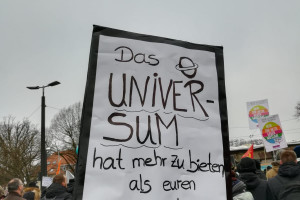 Das
UNIVER-
SUM
hat mehr zu bieten
als euren